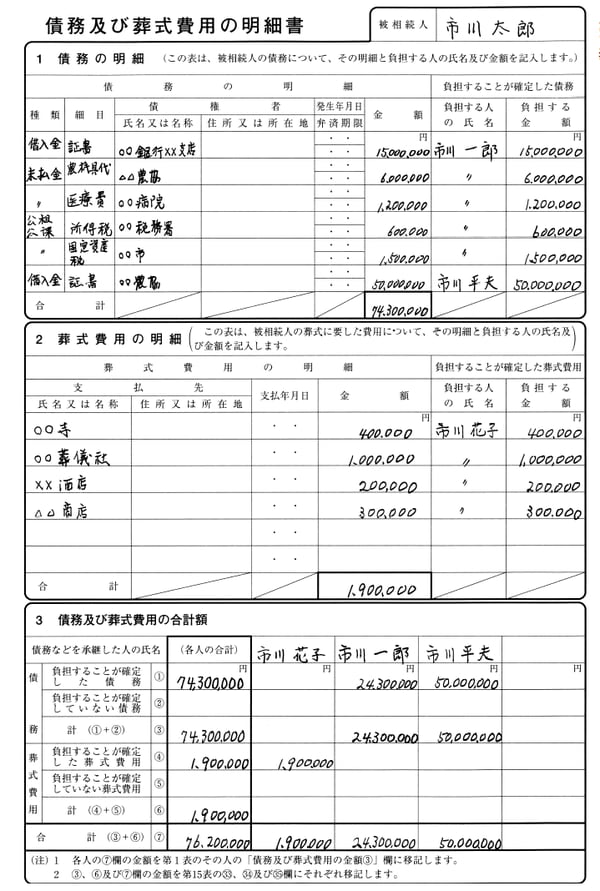 債務及び葬式費用の明細書
被相続人 市川太郎
1 債務の明細 (この表は、被相続人の債務について、その明細と負担する人の氏名及び金額を記入します。)
債務の明細 負担することが確定した債務
種類 細目 債権者 発生年月日 金額 負担する人 負担する
氏名又は名称 住所又は所在地 弁済期限 の氏名 金額
借入金 証書 〇〇銀行××支店 ・・ 円 15,000,000 市川一郎 円 15,000,000
未払金 農機具代 △△農協 ・・ 6,000,000 〃 6,000,000
〃 医療費 〇〇病院 ・・ 1,200,000 〃 1,200,000
公租公課 所得税 〇〇税務署 ・・ 600,000 〃 600,000
〃 固定資産税 〇〇市 ・・ 1,500,000 〃 1,500,000
借入金 証書 〇〇農協 ・・ 50,000,000 市川平夫 50,000,000
合計 74,300,000
2 葬式費用の明細 (この表は、被相続人の葬式に要した費用について、その明細と負担する人の氏名及
び金額を記入します。)
葬式費用の明細 負担することが確定した葬式費用
支払先 支払年月日 金額 負担する人 負担する
氏名又は名称 住所又は所在地 の氏名 金額
〇〇寺 ・・ 円 400,000 市川花子 円 400,000
〇〇葬儀社 ・・ 1,000,000 〃 1,000,000
××酒店 ・・ 200,000 〃 200,000
△△商店 ・・ 300,000 〃 300,000
・・
・・
合計 1,900,000
3 債務及び葬式費用の合計額
債務などを承継した人の氏名 (各人の合計) 市川花子 市川一郎 市川平夫
債務 負担することが確定した債務 ① 円 74,300,000 円 円 24,300,000 円 50,000,000 円
負担することが確定していない債務 ②
計 (①+②) ③ 74,300,000 24,300,000 50,000,000
葬式費用 負担することが確定した葬式費用 ④ 1,900,000 1,900,000
負担することが確定していない葬式費用 ⑤
計 (④+⑤) ⑥ 1,900,000
合計 (③+⑥) ⑦ 76,200,000 1,900,000 24,300,000 50,000,000
(注) 1 各人の⑦欄の金額を第1表のその人の「債務及び葬式費用の金額③」欄に移記します。
2 ③、⑥及び⑦欄の金額を第15表の㉝、㉞及び㉟欄にそれぞれ移記します。